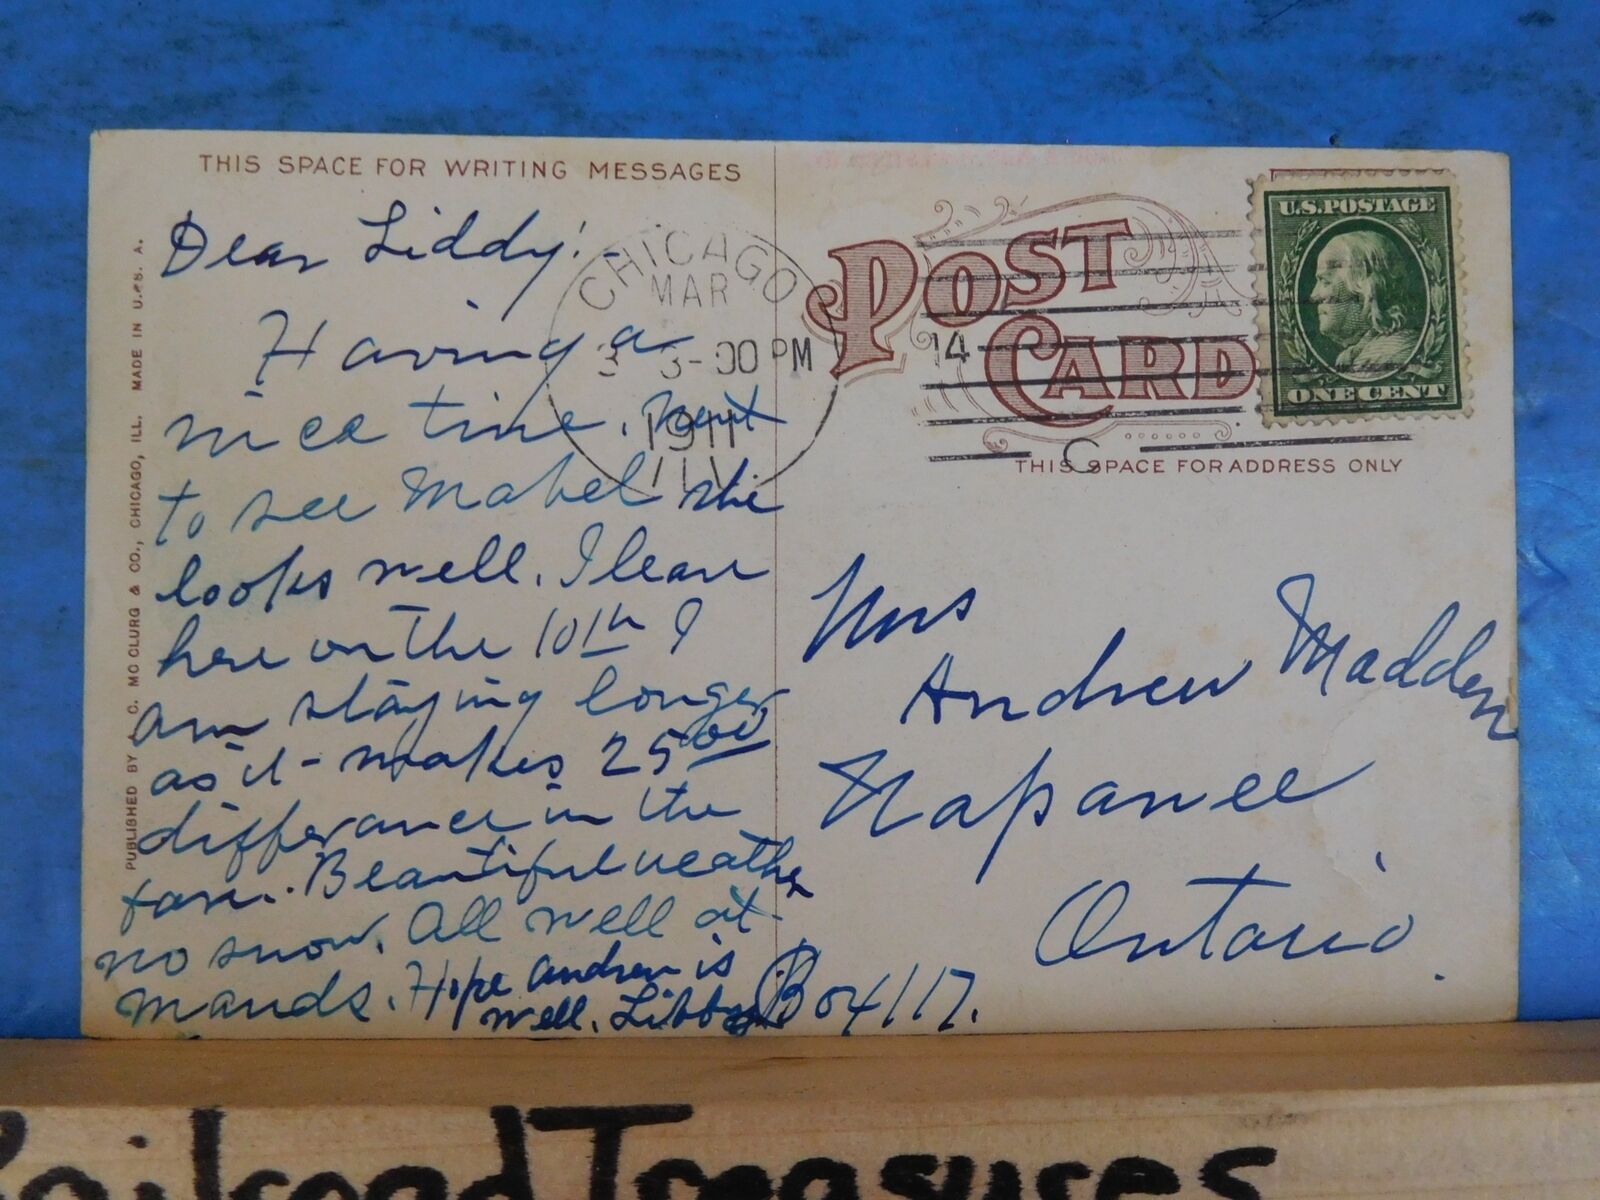 THIS SPACE FOR WRITING MESSAGES
Dear Liddy:-
Having a
nice time. Went
to see Mabel she
looks well. I leave
here on the 10th I
am staying longer
as it makes 25.00
difference in the
fare. Beautiful weather
no snow. All well at
Mauds. Hope Andrew is
well. Libby
PUBLISHED BY A. C. MCCLURG & CO., CHICAGO, ILL. MADE IN U. S. A.
CHICAGO
MAR
3 3-00 PM
1911
ILL
14
C
POST
CARD
U.S. POSTAGE
ONE CENT
THIS SPACE FOR ADDRESS ONLY
Mrs
Andrew Madden
Napanee
Ontario.
Box 117.
Railroad Treasures